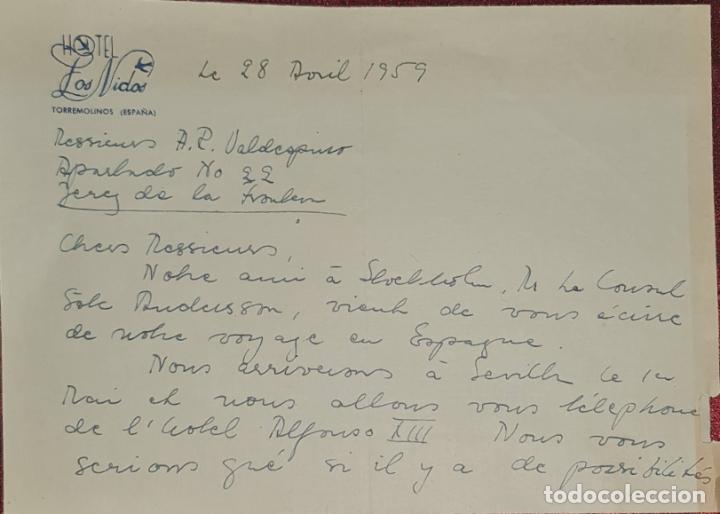 HOTEL
Los Nidos
TORREMOLINOS (ESPAÑA)
Le 28 Avril 1959
Messieurs A.R. Valdespino
Apartado No 22
Jerez de la Frontera
Chers Messieurs,
Notre ami à Stockholm, M Le Consul
Andersson, vient de vous écrire
de notre voyage en Espagne.
Nous arriverons à Seville le 1er
Mai et nous allons vous téléphone
de l'hotel Alfonso XIII Nous vous
serions gré si il y a de possibilités
todocoleccion.net